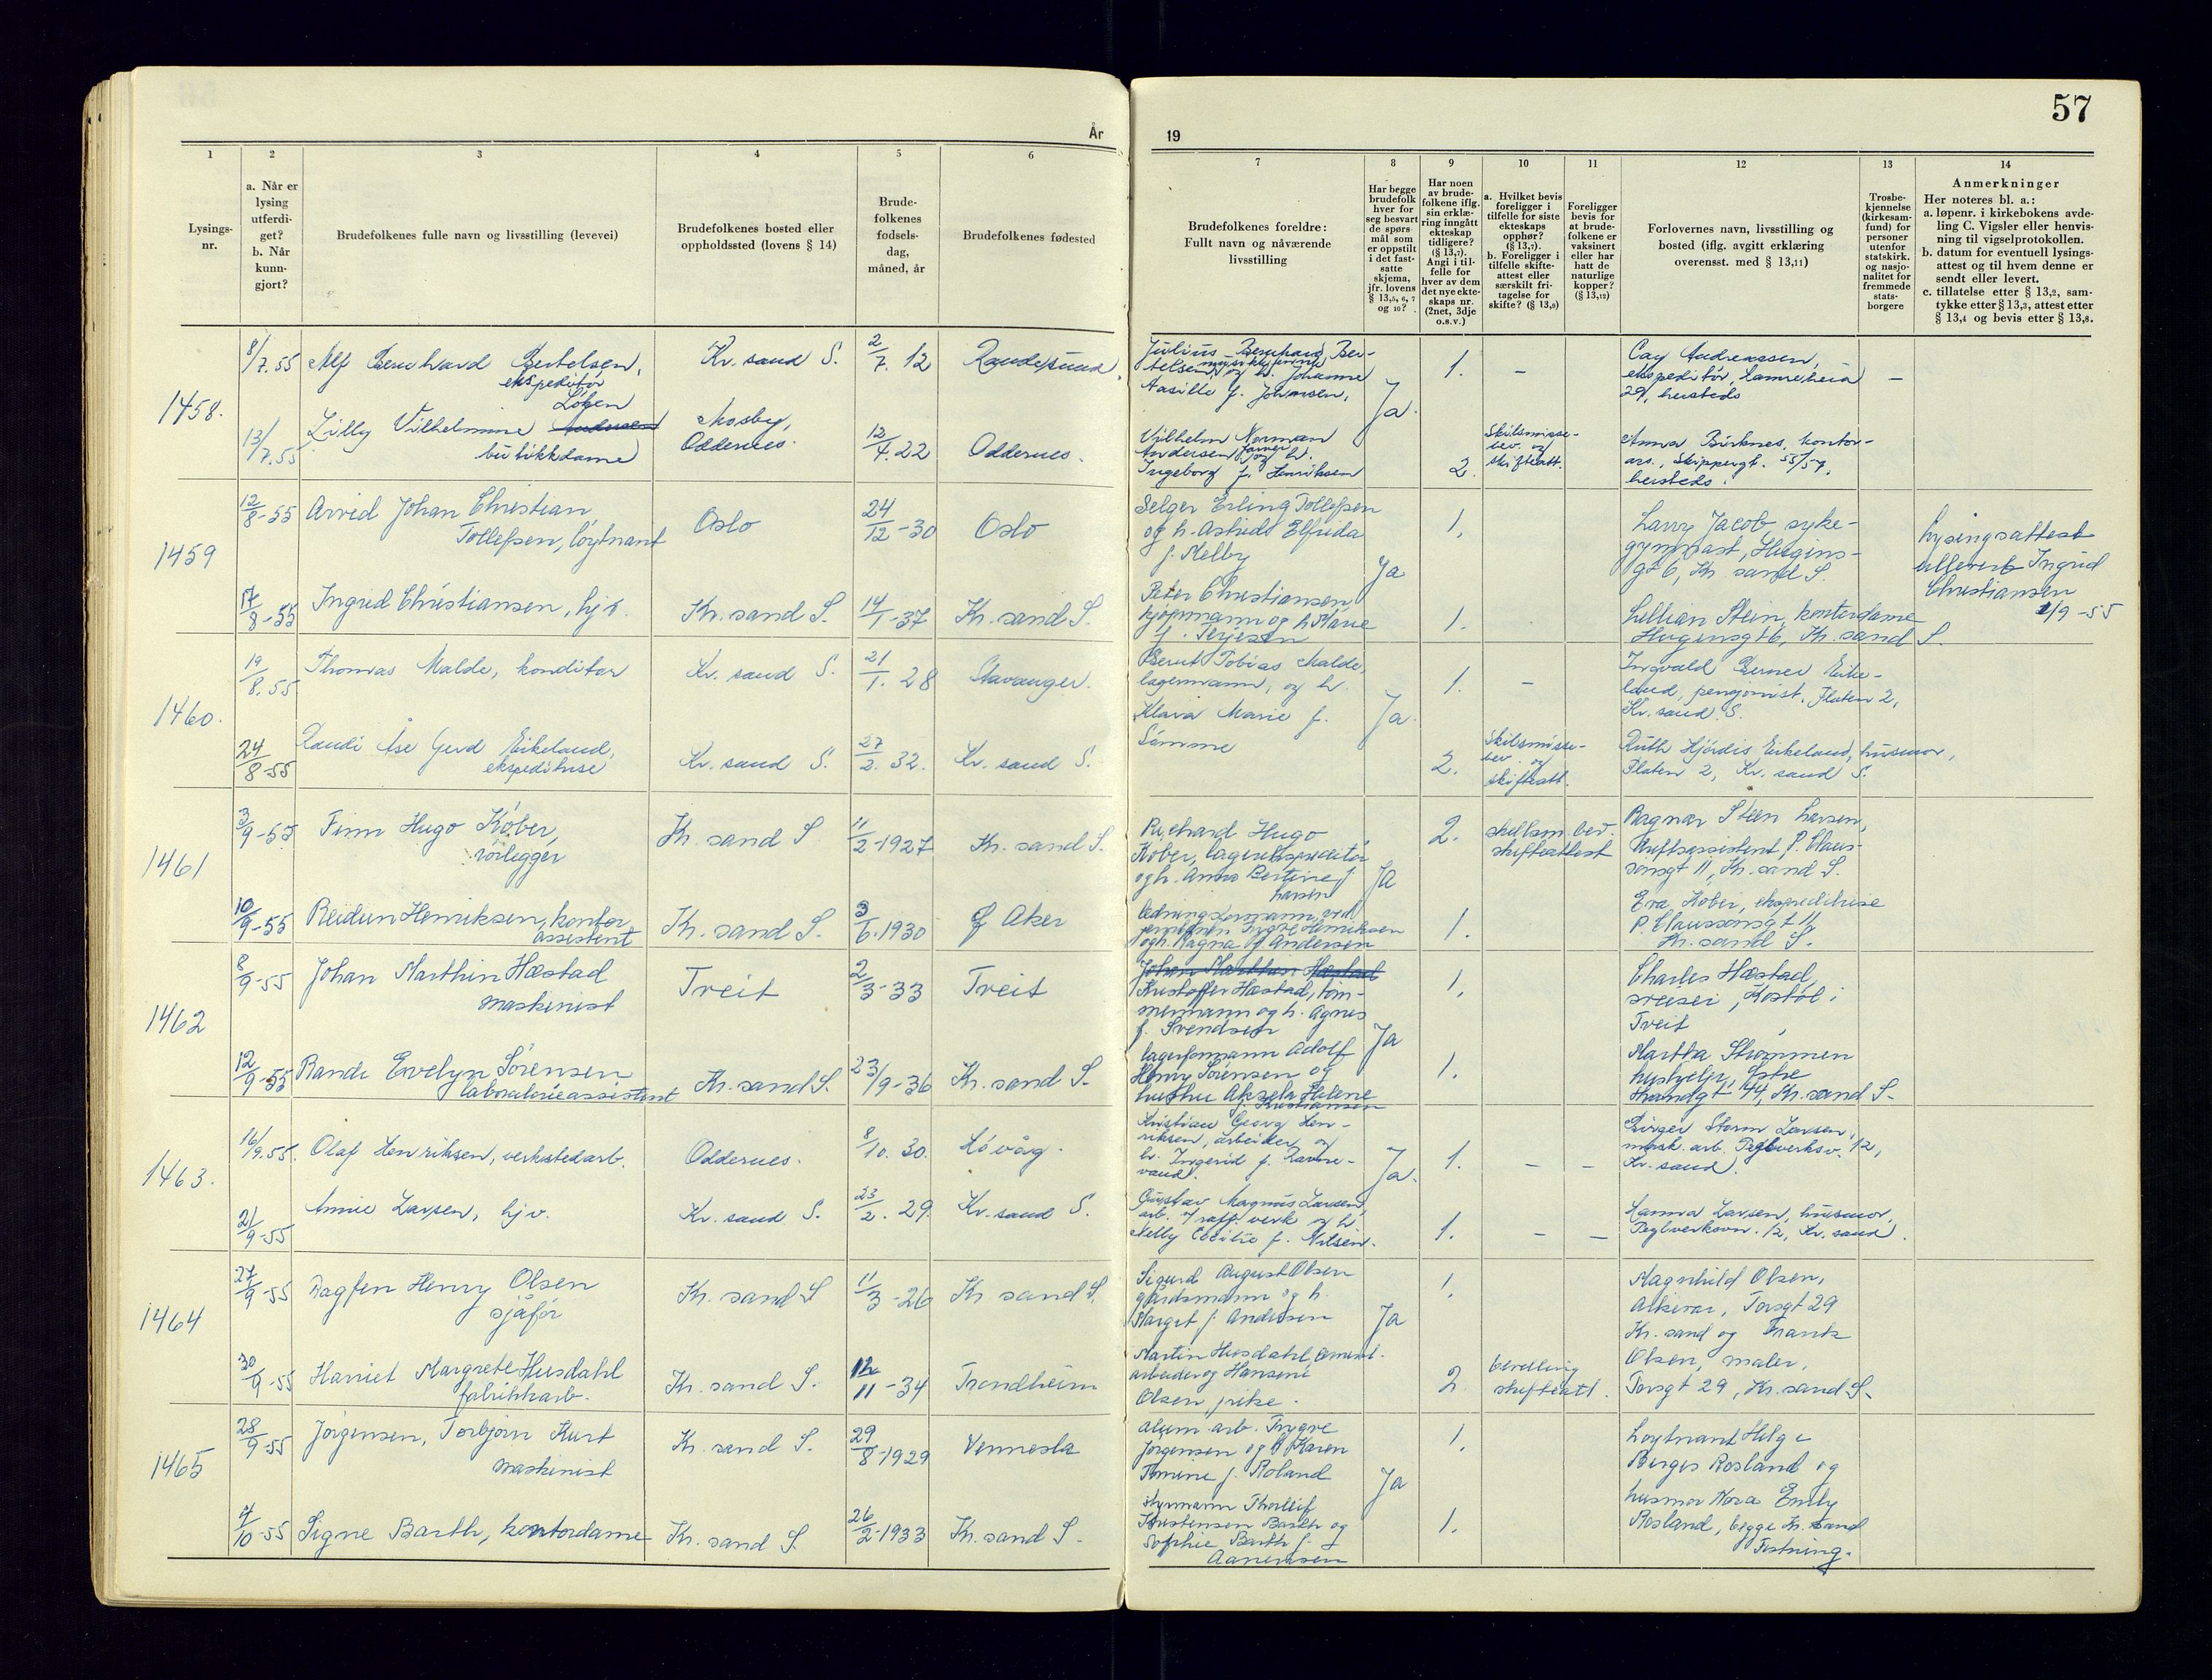 57
År
19
1
2
3
4
5
6
7
8
9
10
11
12
13
14
Lysings-
nr.
a. Når er
lysing
utferdi-
get?
b. Når
kunn-
gjort?
Brudefolkenes fulle navn og livsstilling (levevei)
Brudefolkenes bosted eller
oppholdssted (lovens § 14)
Brude-
folkenes
fødsels-
dag,
måned, år
Brudefolkenes fødested
Brudefolkenes foreldre:
Fullt navn og nåværende
livsstilling
Har begge
brudefolk
hver for
seg besvart
de spørs-
mål som
er oppstilt
i det fast-
satte
skjema,
jfr. lovens
§ 13,5, 6, 7
og 10?
Har noen
av brude-
folkene iflg.
sin erklæ-
ring inngått
ekteskap
tidligere?
(§ 13,7).
Angi i til-
felle for
hver av dem
det nye ekte-
skaps nr.
(2net, 3dje
o.s.v.)
a. Hvilket bevis
foreligger i
tilfelle for siste
ekteskaps
opphør?
(§ 13,7).
b. Foreligger i
tilfelle skifte-
attest eller
særskilt fri-
tagelse for
skifte? (§ 13,9)
Foreligger
bevis for
at brude-
folkene er
vaksinert
eller har
hatt de
naturlige
kopper?
(§ 13,12)
Forlovernes navn, livsstilling og
bosted (iflg. avgitt erklæring
overensst. med § 13,11)
Trosbe-
kjennelse
(kirkesam-
fund) for
personer
utenfor
statskirk.
og nasjo-
nalitet for
fremmede
stats-
borgere
Anmerkninger
Her noteres bl. a.:
a. løpenr. i kirkebokens avde-
ling C. Vigsler eller henvis-
ning til vigselprotokollen.
b. datum for eventuell lysings-
attest og til hvem denne er
sendt eller levert.
c. tillatelse etter § 13,2, sam-
tykke etter § 13,3, attest etter
§ 13,4 og bevis etter § 13,8.
1458.
8/7.55
Alf Bernhard Bertelsen,
ekspeditør
Kr. sand S.
2/7. 12
Randesund.
Julius Bernhard Ber-
telsen, og h. Johanne
Aasille f. Johnsen,
Ja.
1.
–
Cay Andreassen,
ekspeditør, Lamreheia
29, hersteds
–
13/7.55
Løhen
Lilly Vilhelmine Andersen
butikkdame
Mosby,
Oddernes.
12/4.22
Oddernes.
Vilhelm Norman
Andersen og h.
Ingeborg f. Henriksen
2.
Skilsmisse-
bev. og
skifteatt.
Anna Birknes, kontor-
ass., Skippergt. 55/57,
hersteds.
1459
12/8-55
Arvid Johan Christian
Tollefsen, løytnant
Oslo
24/12-30
Oslo
Selger Erling Tollefsen
og h. Astrids Elfrida
f. Melby
Ja
1.
Larry Jacob syke-
gymnast, Hugins-
gt 6, Kr. sand S.
Lysingsattest
utlevert Ingrid
Christiansen
1/9-55
17/8-55
Ingrid Christiansen, hjv.
Kr. sand S.
14/1-37
Kr. sand S.
Peter Christiansen
kjøpmann og h. Marie
f. Terjesen
1.
Lillian Steen, kontordame
Huginsgt 6, Kr. sand S.
1460.
19/8.55
Thomas Malde, konditor
Kr. sand S.
21/1. 28
Stavanger.
Bernt Tobias Malde,
lagermann, og h.
Klara Marie f.
Sømme
Ja.
1.
–
Ingvald Berner Eike-
land, pensjonist, Flaten 2,
Kr. sand S.
24/8-55
Randi Åse Gerd Eikeland,
ekspeditrise
Kr. sand S.
27/2. 32.
Kr. sand S.
2.
Skilsmisse-
bev. og
skifteatt.
Ruth Hjørdis Eikeland, husmor,
Flaten 2, Kr. sand S.
1461
3/9-55
Finn Hugo Køber,
rørlegger
Kr. sand S
11/2-1927
Kr. sand S.
Richard Hugo
Køber, lagerekspeditør
og h. Anna Bertine f
Larsen
Ja
2.
skilsm. bev.
skifteattest
Ragnar Steen Larsen,
driftsassistent, P. Claus-
sonsgt 11, Kr. sand S.
10/9-55
Reidun Henriksen, kontor
assistent
Kr. sand S.
3/6-1930
Aker
Henriksen
og h. Ragna f. Andersen
1.
Eva Køber, ekspeditrise
P. Claussonsgt 11
Kr. sand S.
1462
8/9-55
Johan Marthin Hæstad
maskinist
Tveit
2/3-33
Tveit
Johan Marthin Hæstad
Kristoffer Hæstad, tøm-
mermann og h. Agnes
f. Svendsen
Ja
1.
Charles Hæstad,
sveiser, Kostøl i
Tveit
12/9-55
Randi Evelyn Sørensen
laboratorieassistent
Kr. sand S.
23/9-36
Kr. sand S.
lagerformann Adolf
Henry Sørensen og
hustru Aksela Helene
f. Kristiansen
1.
Martha Strømmen
hushjelp, Østre
Strandgt 44, Kr. sand S.
1463.
16/9.55.
Olaf Henriksen, verkstedarb.
Oddernes.
8/10. 30.
Høvåg.
Kristian Georg Hen-
riksen, arbeider og
h. Ingerid f. Ramse-
vand.
Ja.
1.
–
–
Birger Storm Larsen,
mask. arb. Teglverksv. 12,
Kr. sand.
21/9-55
Annie Larsen, hjv.
Kr. sand S.
23/2. 29.
Kr. sand S.
Gustav Magnus Larsen,
arb. v/raff. verk og h.
Nelly Cecilie f. Nilsen.
1.
–
–
Hanna Larsen, husmor,
Teglverksvn. 12, Kr. sand.
1464
27/9-55
Dagfin Henry Olsen
sjåfør
Kr. sand S
11/3-26
Kr sand S.
Sigurd August Olsen
gårdsmann og h.
Margit f. Andersen
Ja
1.
Magnhild Olsen,
Torvgt 29
Kr. sand og Frantz
30/9-55
Harriet Margrethe Husdahl
fabrikkarb.
Kr. sand S.
12/11-34
Trondheim
Martin Husdahl, cement.
arbeider og Hansine
Olsen, pike.
2
bevilling
skifteatt.
Olsen, maler,
Torvgt 29, Kr. sand S.
1465
28/9-55
Jørgensen, Torbjørn Kurt
maskinist
Kr. sand S.
29/8-1929
Vennesla
alum. arb. Trygve
Jørgensen og h Karen
Tomine f. Roland
Ja
1.
Løytnant Helge
Birger Rosland og
4/10-55
Signe Barth, kontordame
Kr. sand S.
26/2-1933
Kr. sand S.
styrmann Thorleif
Kristensen Barth og
Sophie Barth f.
Aanensen
1.
husmor Nora Emily
Rosland, begge Kr. sand
Festning.